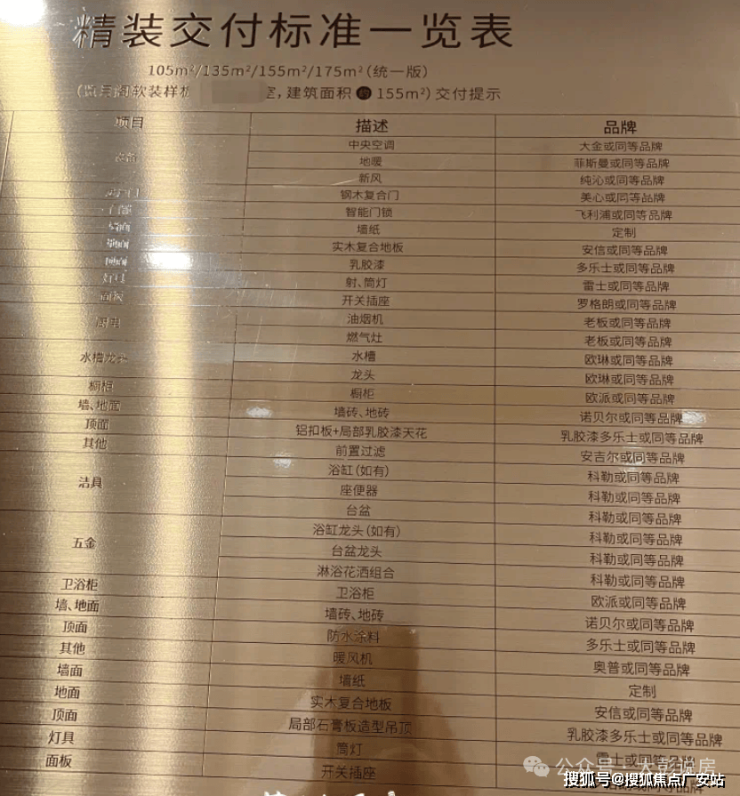 精装交付标准一览表
105m²/135m²/155m²/175m²(统一版)
软装样板 室,建筑面积约155m²)交付提示
项目 描述 品牌
中央空调 大金或同等品牌
地暖 菲斯曼或同等品牌
新风 纯沁或同等品牌
钢木复合门 美心或同等品牌
智能门锁 飞利浦或同等品牌
墙面 墙纸 定制
地面 实木复合地板 安信或同等品牌
乳胶漆 多乐士或同等品牌
灯具 射、筒灯 雷士或同等品牌
开关插座 罗格朗或同等品牌
厨具 油烟机 老板或同等品牌
燃气灶 老板或同等品牌
水槽龙头 水槽 欧琳或同等品牌
龙头 欧琳或同等品牌
橱柜 橱柜 欧派或同等品牌
墙、地面 墙砖、地砖 诺贝尔或同等品牌
顶面 铝扣板+局部乳胶漆天花 乳胶漆多乐士或同等品牌
其他 前置过滤 安吉尔或同等品牌
洁具 浴缸(如有) 科勒或同等品牌
座便器 科勒或同等品牌
台盆 科勒或同等品牌
五金 浴缸龙头(如有) 科勒或同等品牌
台盆龙头 科勒或同等品牌
淋浴花洒组合 科勒或同等品牌
卫浴柜 卫浴柜 欧派或同等品牌
墙、地面 墙砖、地砖 诺贝尔或同等品牌
顶面 防水涂料 多乐士或同等品牌
其他 暖风机 奥普或同等品牌
墙面 墙纸 定制
地面 实木复合地板 安信或同等品牌
顶面 局部石膏板造型吊顶 乳胶漆多乐士或同等品牌
灯具 筒灯 雷士或同等品牌
面板 开关插座
公众号·大彭暖房
搜狐号@搜狐焦点广安站